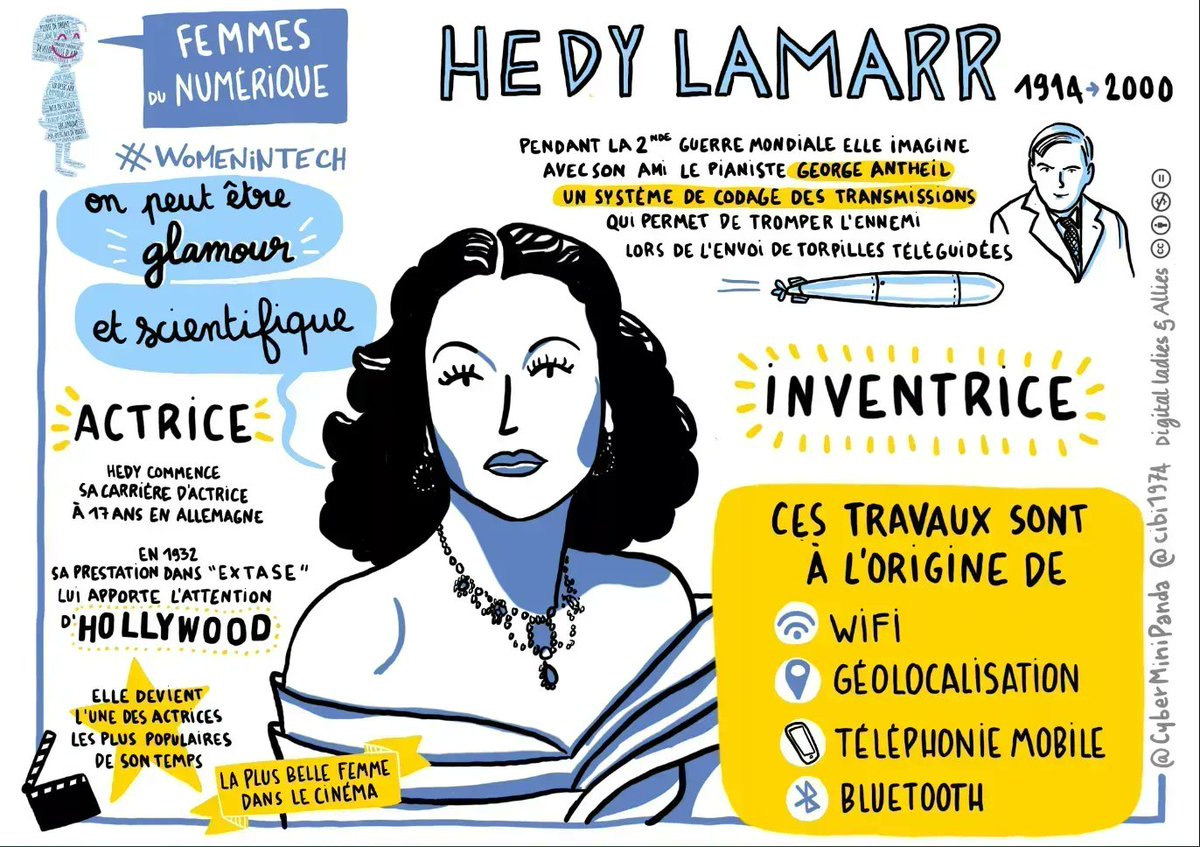 FEMMES
DU NUMÉRIQUE
#WOMENINTECH
HEDY LAMARR 1914→2000
on peut être
glamour
et scientifique
PENDANT LA 2NDE GUERRE MONDIALE ELLE IMAGINE
AVEC SON AMI LE PIANISTE GEORGE ANTHEIL
UN SYSTÈME DE CODAGE DES TRANSMISSIONS
QUI PERMET DE TROMPER L'ENNEMI
LORS DE L'ENVOI DE TORPILLES TÉLÉGUIDÉES
ACTRICE
HEDY COMMENCE
SA CARRIÈRE D'ACTRICE
À 17 ANS EN ALLEMAGNE
EN 1932
SA PRESTATION DANS "EXTASE"
LUI APPORTE L'ATTENTION
D'HOLLYWOOD
ELLE DEVIENT
L'UNE DES ACTRICES
LES PLUS POPULAIRES
DE SON TEMPS
LA PLUS BELLE FEMME
DANS LE CINÉMA
INVENTRICE
CES TRAVAUX SONT
À L'ORIGINE DE
WIFI
GÉOLOCALISATION
TÉLÉPHONIE MOBILE
BLUETOOTH
@CyberMiniPanda @cibi1974 Digital ladies & Allies cc